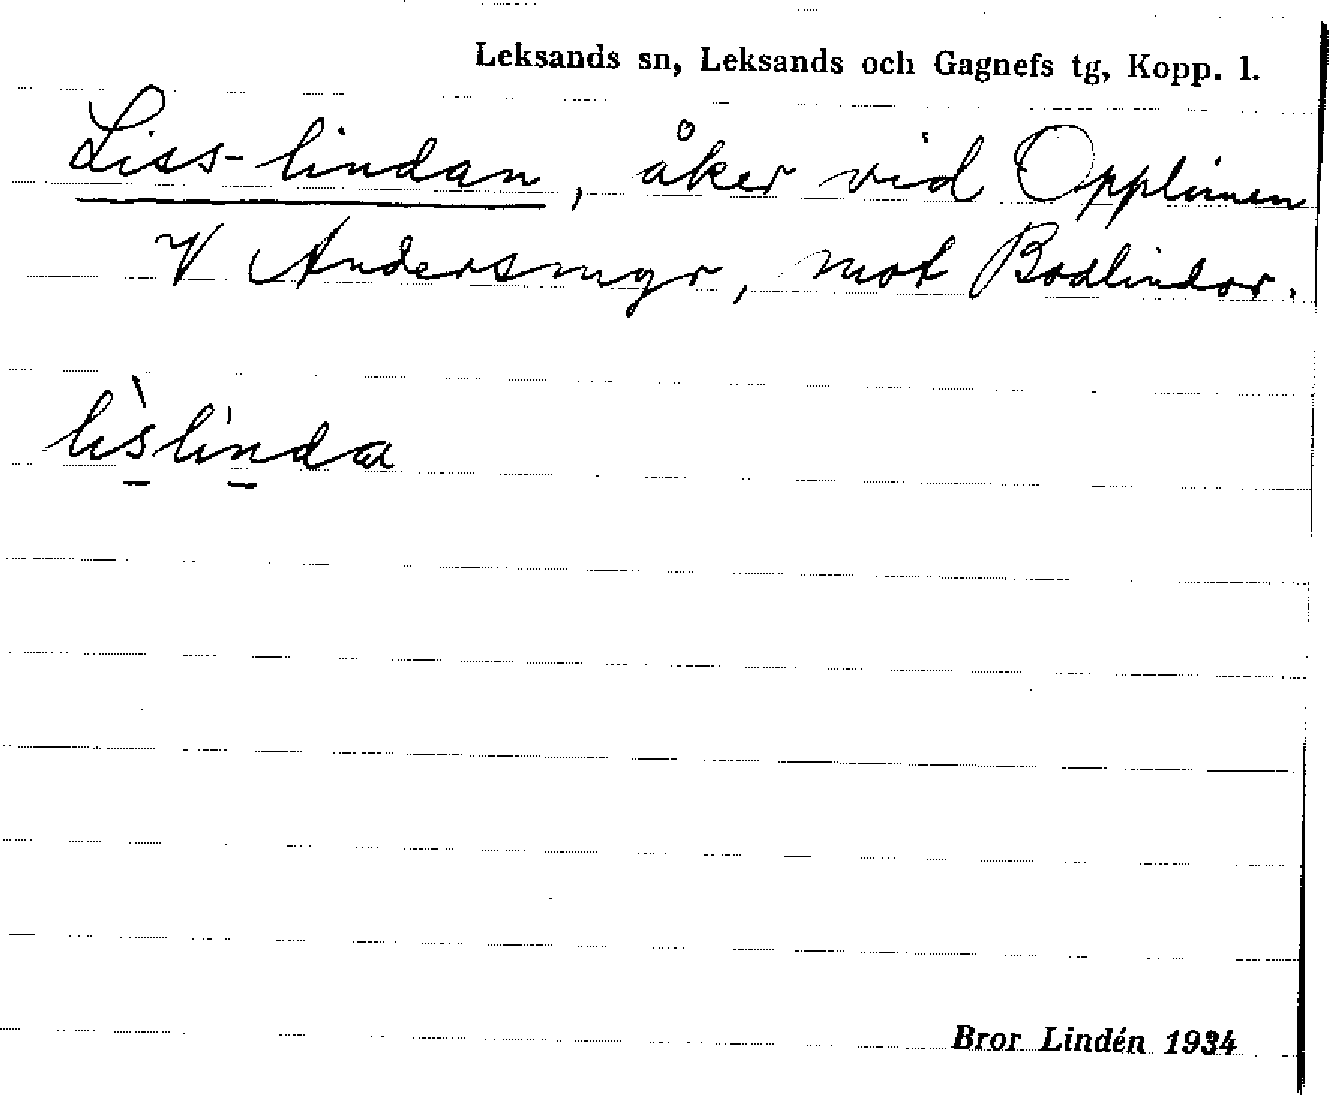 Leksands sn, Leksands och Gagnefs tg, Kopp. l.
Liss-lindan, åker vid Opplimen
V Andersmyr, mot Bodlindor.
lìslinda
Bror Lindén 1934